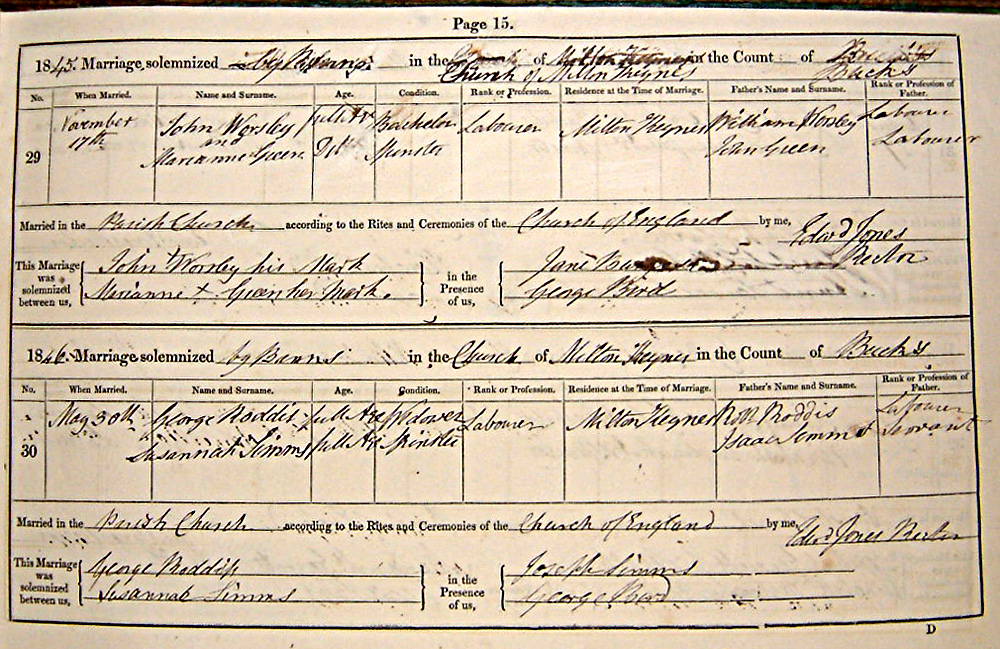 Page 15.
1845. Marriage solemnized in the of Milton Keynes in the Count of
Church of Milton Keynes Buck's
No. When Married. Name and Surname. Age. Condition. Rank or Profession. Residence at the Time of Marriage. Father's Name and Surname. Rank or Profession of Father.
29 November 17th John Worsley full Age Bachelor Labourer Milton Keynes William Worsley Labourer
and
Marianne Green Do Labourer John Green
Married in the Parish Church according to the Rites and Ceremonies of the Church of England by me, Edwd Jones
Rector
This Marriage was solemnized between us, John Worsley his Mark in the Presence of us, Jane
Marianne X Green her Mark. George Bird
1846. Marriage solemnized by Banns in the Church of Milton Keynes in the Count of Buck's
No. When Married. Name and Surname. Age. Condition. Rank or Profession. Residence at the Time of Marriage. Father's Name and Surname. Rank or Profession of Father.
30 May 30th George Roddis full Age Widower Labourer Milton Keynes Robt Roddis Labourer
Susannah Simms full Age Isaac Simms Servant
Married in the Parish Church according to the Rites and Ceremonies of the Church of England by me, Edwd Jones Rector
This Marriage was solemnized between us, George Roddis in the Presence of us, Joseph Simms
Susannah Simms George Bird
D